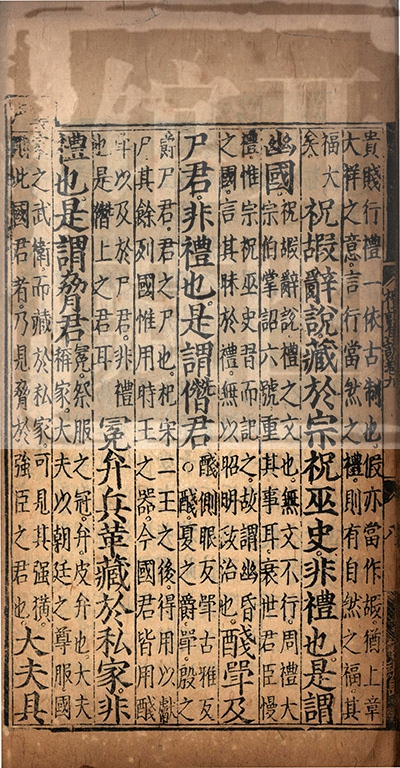 貴賤行禮一依古制也假亦當作嘏猶上章
大祥之意言行當然之禮則有自然之福其
福大
矣
祝嘏辭說藏於宗祝巫史非禮也是謂
幽國
祝嘏辭說禮之文也無文不行周禮大
宗伯掌詔六號重其事耳衰世君臣慢
禮惟宗祝巫史習而記之故謂幽昏
之國言其昧於禮無以昭明政治也
醆斝及
尸君非禮也是謂僭君
○醆側眼反斝古雅反
醆夏之爵斝殷之
爵尸君君之尸也杞宋二王之後得用以獻
尸其餘列國惟用時王之器今國君皆用醆
斝以及於尸君非禮
也是僭上之君耳
冕弁兵革藏於私家非
禮也是謂脅君
冕祭服之冠弁皮弁也大夫
稱家大夫以朝廷之尊服國
家之武衛而藏於私家可見其强橫
此國君者乃見脅於强臣之君也
大夫具